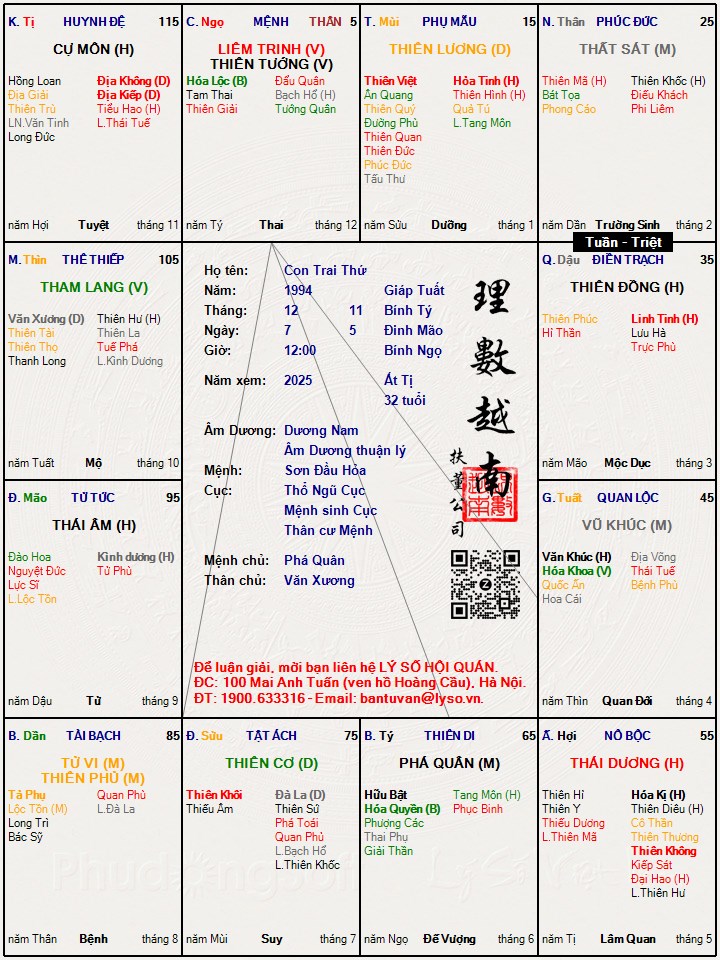 K. Tị HUYNH ĐỆ 115
CỰ MÔN (H)
Hồng Loan Địa Không (D)
Địa Giải Địa Kiếp (D)
Thiên Trù Tiểu Hao (H)
LN.Văn Tinh L.Thái Tuế
Long Đức
năm Hợi Tuyệt tháng 11
C. Ngọ MỆNH THÂN 5
LIÊM TRINH (V)
THIÊN TƯỚNG (V)
Hóa Lộc (B) Đẩu Quân
Tam Thai Bạch Hổ (H)
Thiên Giải Tướng Quân
năm Tý Thai tháng 12
T. Mùi PHỤ MẪU 15
THIÊN LƯƠNG (D)
Thiên Việt Hỏa Tinh (H)
Ân Quang Thiên Hình (H)
Thiên Quý Quả Tú
Đường Phù L.Tang Môn
Thiên Quan
Thiên Đức
Phúc Đức
Tấu Thư
năm Sửu Dưỡng tháng 1
N. Thân PHÚC ĐỨC 25
THẤT SÁT (M)
Thiên Mã (H) Thiên Khốc (H)
Bát Tọa Điếu Khách
Phong Cáo Phi Liêm
năm Dần Trường Sinh tháng 2
Tuần - Triệt
M. Thìn THÊ THIẾP 105
THAM LANG (V)
Văn Xương (D) Thiên Hư (H)
Thiên Tài Thiên La
Thiên Thọ Tuế Phá
Thanh Long L.Kình Dương
năm Tuất Mộ tháng 10
Họ tên: Con Trai Thứ
Năm: 1994 Giáp Tuất
Tháng: 12 11 Bính Tý
Ngày: 7 5 Đinh Mão
Giờ: 12:00 Bính Ngọ
Năm xem: 2025 Ất Tị
32 tuổi
Âm Dương: Dương Nam
Âm Dương thuận lý
Mệnh: Sơn Đầu Hỏa
Cục: Thổ Ngũ Cục
Mệnh sinh Cục
Thân cư Mệnh
Mệnh chủ: Phá Quân
Thân chủ: Văn Xương
理數越南
扶董公司
Để luận giải, mời bạn liên hệ LÝ SỐ HỘI QUÁN.
ĐC: 100 Mai Anh Tuấn (ven hồ Hoàng Cầu), Hà Nội.
ĐT: 1900.633316 - Email: bantuvan@lyso.vn.
Q. Dậu ĐIỀN TRẠCH 35
THIÊN ĐỒNG (H)
Thiên Phúc Linh Tinh (H)
Hỉ Thần Lưu Hà
Trực Phù
năm Mão Mộc Dục tháng 3
Đ. Mão TỬ TỨC 95
THÁI ÂM (H)
Đào Hoa Kình dương (H)
Nguyệt Đức Tử Phù
Lực Sĩ
L.Lộc Tồn
năm Dậu Tử tháng 9
G. Tuất QUAN LỘC 45
VŨ KHÚC (M)
Văn Khúc (H) Địa Võng
Hóa Khoa (V) Thái Tuế
Quốc Ấn Bệnh Phù
Hoa Cái
năm Thìn Quan Đới tháng 4
B. Dần TÀI BẠCH 85
TỬ VI (M)
THIÊN PHỦ (M)
Tả Phụ Quan Phù
Lộc Tồn (M) L.Đà La
Long Trì
Bác Sỹ
năm Thân Bệnh tháng 8
Đ. Sửu TẬT ÁCH 75
THIÊN CƠ (D)
Thiên Khôi Đà La (D)
Thiếu Âm Thiên Sứ
Phá Toái
Quan Phủ
L.Bạch Hổ
L.Thiên Khốc
năm Mùi Suy tháng 7
B. Tý THIÊN DI 65
PHÁ QUÂN (M)
Hữu Bật Tang Môn (H)
Hóa Quyền (B) Phục Binh
Phượng Các
Thai Phụ
Giải Thần
năm Ngọ Đế Vượng tháng 6
Ấ. Hợi NÔ BỘC 55
THÁI DƯƠNG (H)
Thiên Hỉ Hóa Kị (H)
Thiên Y Thiên Diêu (H)
Thiếu Dương Cô Thần
L.Thiên Mã Thiên Thương
Thiên Không
Kiếp Sát
Đại Hao (H)
L.Thiên Hư
năm Tị Lâm Quan tháng 5